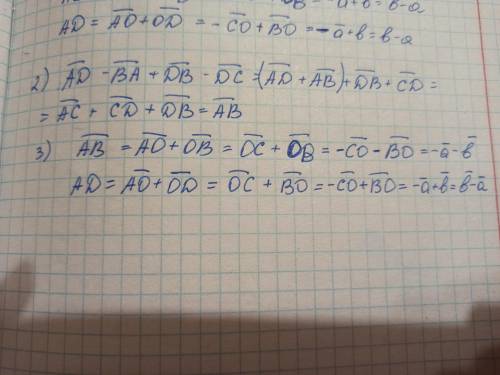 AD = A̅O̅ + O̅D̅ = - C̅O̅ + B̅O̅ = - a̅ + b = b - a
2) A̅D̅ - B̅A̅ + D̅B̅ - D̅C̅ = (A̅D̅ + A̅B̅) + D̅B̅ + C̅D̅ =
= A̅C̅ + C̅D̅ + D̅B̅ = A̅B̅
3) A̅B̅ = A̅O̅ + O̅B̅ = O̅C̅ + O̅B̅ = -C̅O̅ - B̅O̅ = -a̅ - b̅
AD = A̅O̅ + O̅D̅ = O̅C̅ + B̅O̅ = -C̅O̅ + B̅O̅ = -a̅ + b̅ = b̅ - a̅